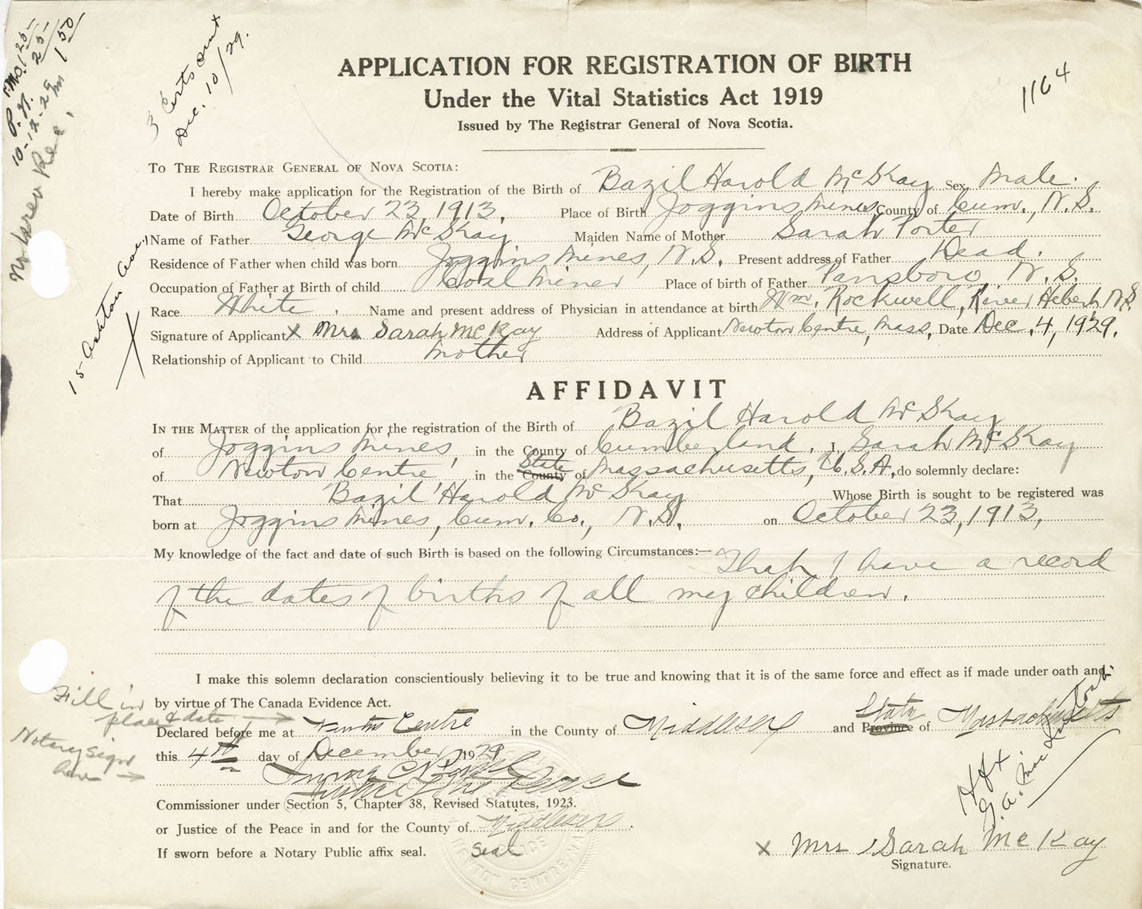 Fms. 1 25
P.N. 25
10-12-29 1 50
No Prev Rec.
3 Certs sent
Dec. 10/29.
1164
15 Ashton Ave.
APPLICATION FOR REGISTRATION OF BIRTH
Under the Vital Statistics Act 1919
Issued by The Registrar General of Nova Scotia.
TO THE REGISTRAR GENERAL OF NOVA SCOTIA:
I hereby make application for the Registration of the Birth of Bazil Harold McKay Sex Male.
Date of Birth October 23, 1913. Place of Birth Joggins Mines County of Cum., N.S.
Name of Father George McKay Maiden Name of Mother Sarah Porter
Residence of Father when child was born Joggins Mines, N.S. Present address of Father Dead.
Occupation of Father at Birth of child Coal Miner Place of birth of Father Parrsboro, N.S.
Race White, Name and present address of Physician in attendance at birth Wm. Rockwell, River Hebert, N.S
Signature of Applicant x Mrs Sarah McKay Address of Applicant Newton Centre, Mass, Date Dec. 4, 1929.
Relationship of Applicant to Child Mother
AFFIDAVIT
IN THE MATTER of the application for the registration of the Birth of Bazil Harold McKay
of Joggins Mines, in the County of Cumberland, I, Sarah McKay
of Newton Centre, in the County State of Massachusetts, U.S.A, do solemnly declare:
That Bazil Harold McKay Whose Birth is sought to be registered was
born at Joggins Mines, Cum. Co., N.S. on October 23, 1913,
My knowledge of the fact and date of such Birth is based on the following Circumstances:— That I have a record
of the dates of births of all my children.
I make this solemn declaration conscientiously believing it to be true and knowing that it is of the same force and effect as if made under oath and
by virtue of The Canada Evidence Act.
Fill in
place & date
Declared before me at Newton Centre in the County of Middlesex and Province State of Massachusetts
Notary sign
here
this 4th day of December 1929
Justice of the Peace
Commissioner under Section 5, Chapter 38, Revised Statutes, 1923.
or Justice of the Peace in and for the County of Middlesex.
If sworn before a Notary Public affix seal. Seal
x Mrs Sarah McKay
Signature.